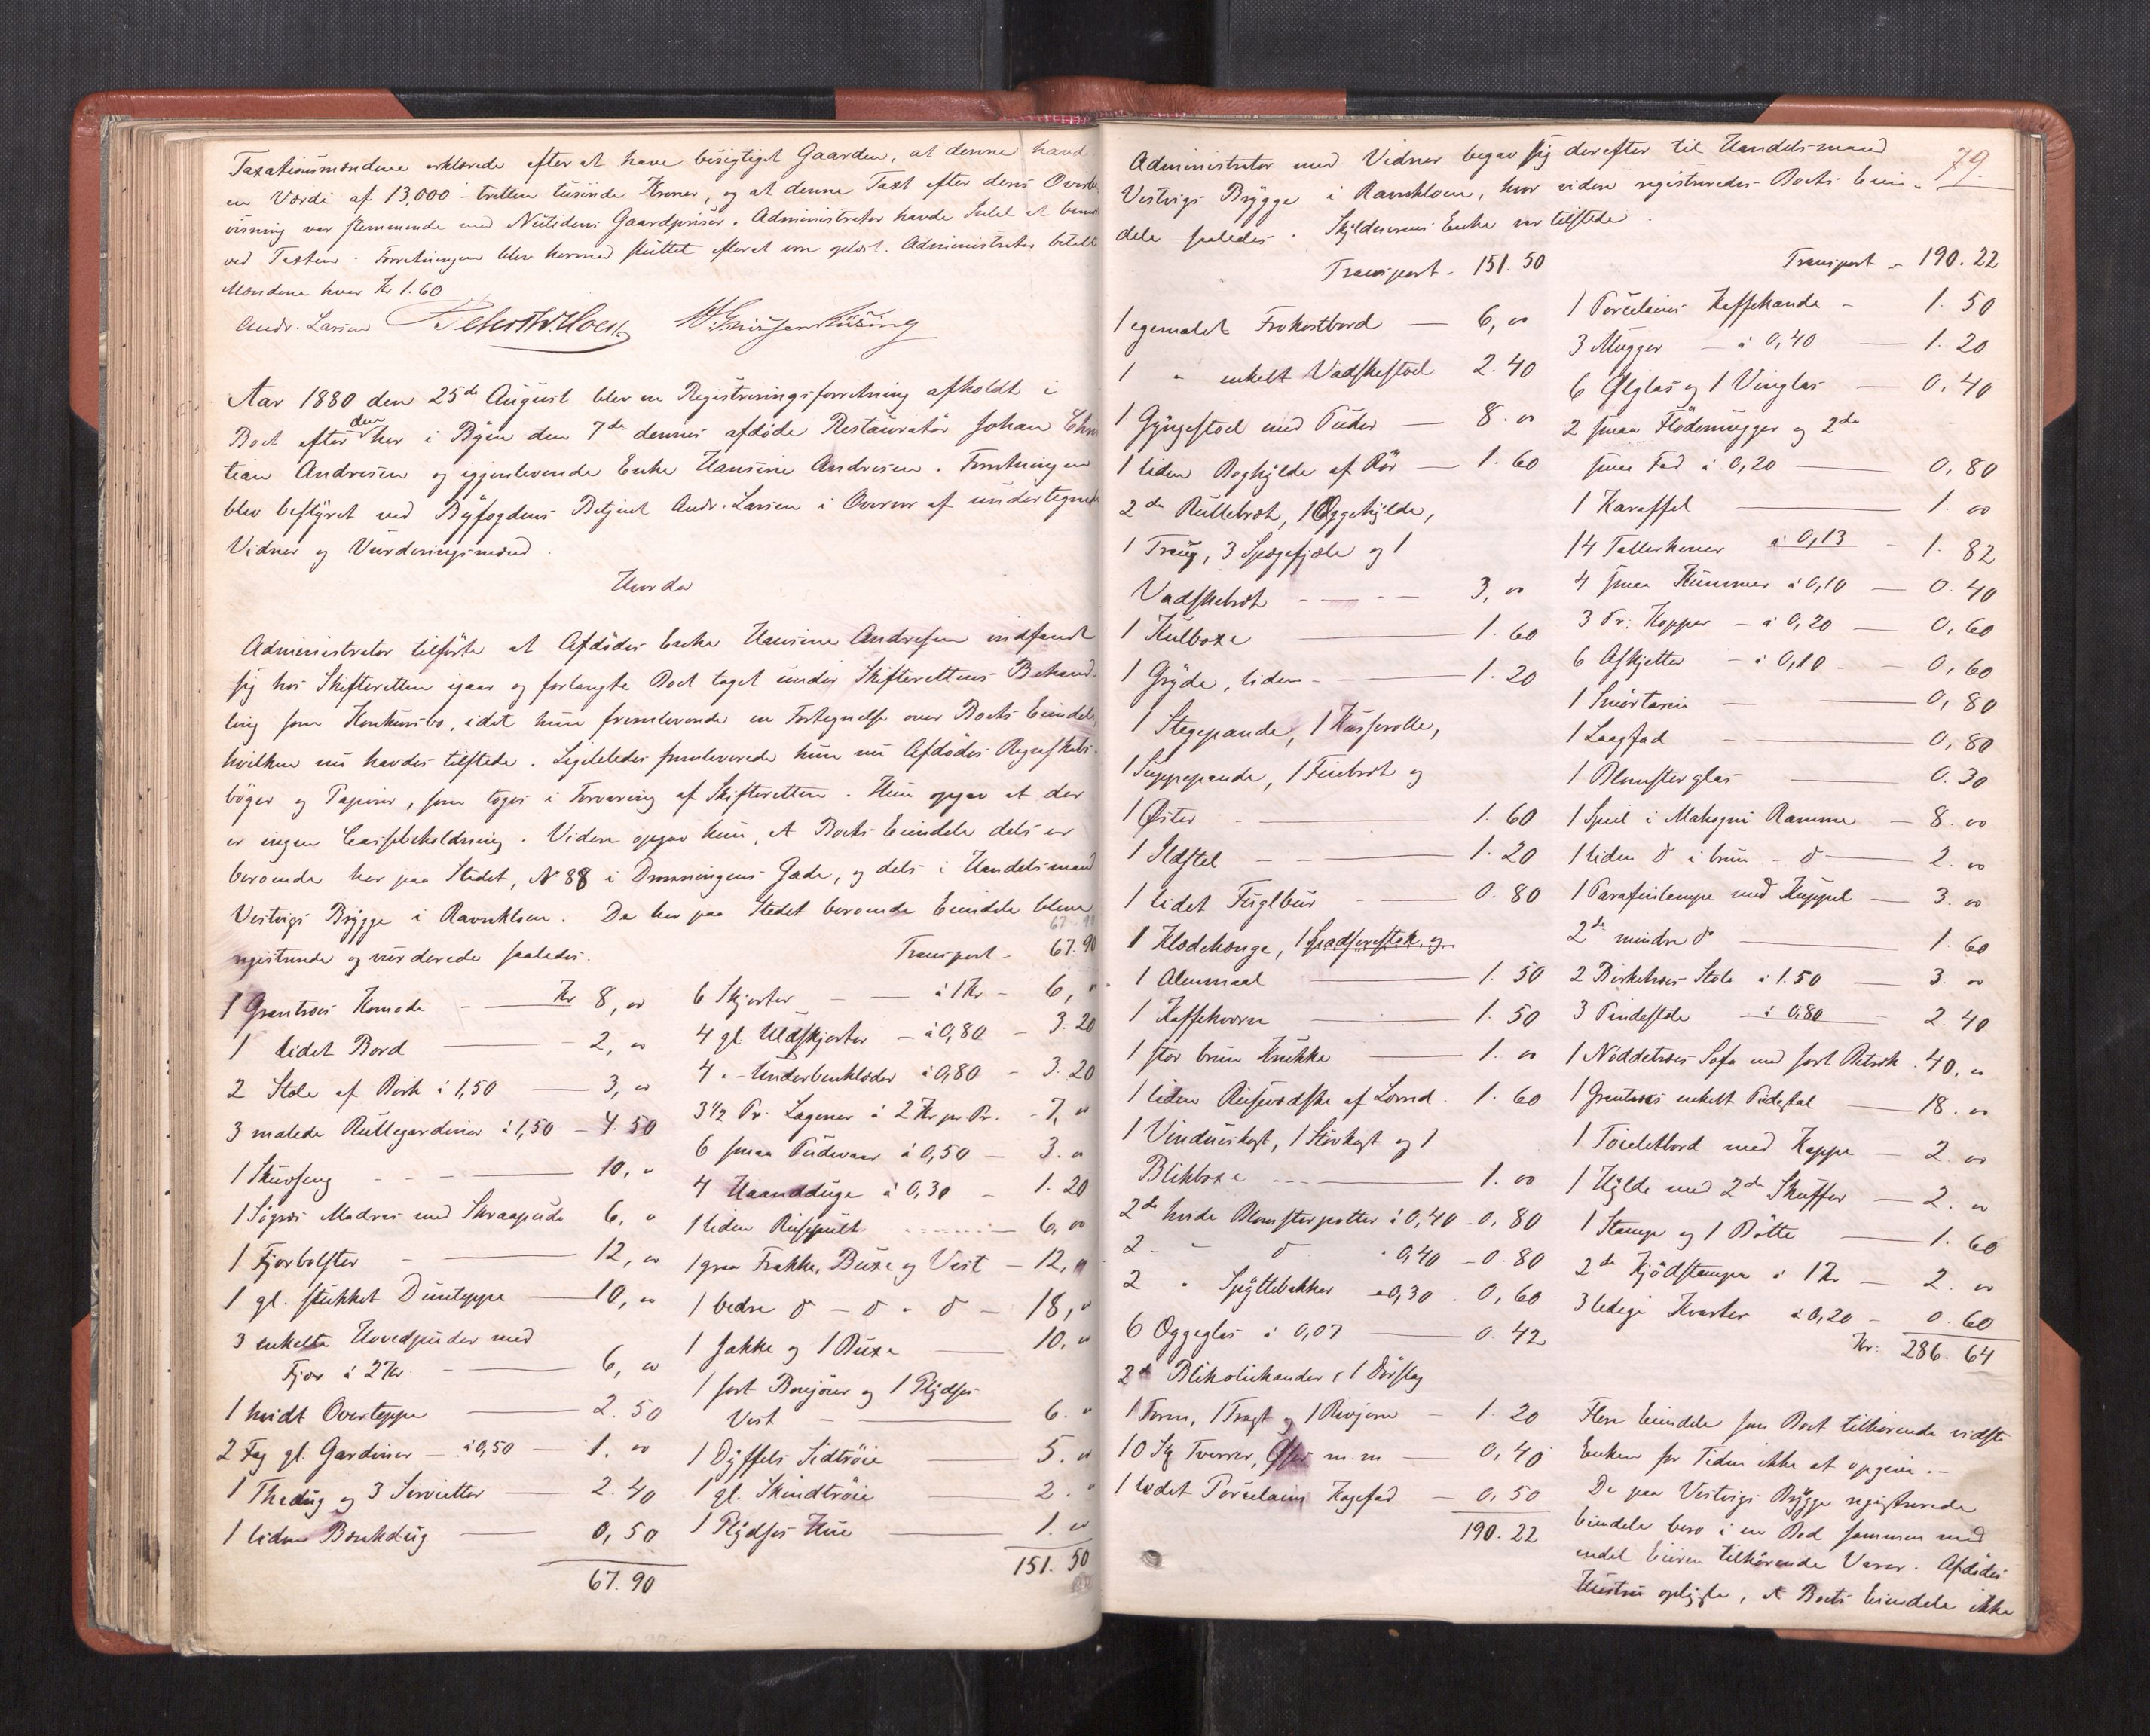 Taxationsmændene erklærede efter at have besigtiget Gaarden, at denne havd
en Værdi af 13,000 - tretten tusinde Kroner, og at denne Taxt efter deres Overbe
visning var stemmende med Nutidens Gaardpriser. Administrator havde Intet at bemæ
ved Taxten. Forretningen blev hermed sluttet efterat være oplæst. Administrator betalt
Mændene hver Kr 1.60
Andr. Larsen
Aar 1880 den 25de August blev en Registreringsforretning afholdt i
Boet efter den her i Byen den 7de dennes afdøde Restauratør Johan Chris
tian Andresen og igjenlevende Enke Hansine Andresen. Forretningen
blev bestyret ved Byfogdens Betjent Andr. Larsen i Overvær af undertegnede
Vidner og Vurderingsmænd.
Hvorda
Administrator tilførte at Afdødes Enke Hansine Andresen indfandt
sig hos Skifteretten igaar og forlangte Boet taget under Skifterettens Behand-
ling som Konkursbo, idet hun fremleverede en Fortegnelse over Boets Eiendele,
hvilken nu havdes tilstede. Ligeledes fremleverede hun nu Afdødes Regnskabs-
bøger og Papirer, som toges i Forvaring af Skifteretten. Hun opgav at der
er ingen Cassebeholdning. Videre opgav hun, at Boets Eiendele dels er
beroende her paa Stedet, No 88 i Dronningens Gade, og dels i Handelsmand
Vestvigs Brygge i Ravnkloen. De her paa Stedet beroende Eiendele bleve
registrerede og vurderede saaledes.
1 Grantræs Komode - Kr 8, 00
1 lidet Bord - 2, 00
2 Stole af Birk à 1,50 - 3, 00
3 malede Rullegardiner à 1,50 - 4.50
1 Skuvseng - 10, "
1 Søgræs Madras med Skraapude 6, "
1 Fjærbolster - 12, 00
1 gl. stukket Duunteppe - 10, 00
3 enkelte Hovedpuder med
Fjær à 2 Kr - 6, 00
1 hvidt Overteppe - 2.50
2 Fag gl. Gardiner - à 0,50 - 1. 00
1 Thedug og 3 Servietter - 2.40
1 liden Bænkdug - 0,50
67.90
Transport - 67.90
6 Skjorter - à 1 Kr - 6, "
4 gl Uldskjorter - à 0,80 - 3.20
4 " - Underbenklæder à 0,80 - 3.20
3 1/2 Pr. Lagener à 2 Kr pr Pr. - 7, "
6 smaa Pudevaar à 0,50 - 3. "
4 Haandduge à 0,30 - 1.20
1 liden Reisepult - 6, 00
1 graa Frakke, Buxe og Vest - 12, "
1 bedre d - d - d - 18, "
1 Jakke og 1 Buxe - 10, "
1 sort Bonjour og 1 Plydses
Vest - 6. "
1 Dyffels Sidtrøie - 5. "
1 gl. Skindtrøie - 2. "
1 Plydses Hue - 1. 00
151.50
79.
Administrator med Vidner begav sig derefter til Handelsmand
Vestvigs Brygge i Ravnkloen, hvor videre registreredes Boets Eien-
dele saaledes. Skyldnerens Enke var tilstede.
Transport - 151.50
1 egemalet Frokostbord - 6, 00
1 " enkelt Vadskestol 2.40
1 Gyngestol med Puder - 8. 00
1 liden Boghylde af Rør - 1.60
2de Rullebræt, 1 Æggehylde,
1 Traug, 3 Spegefjæle og 1
Vadskebræt - 3, 00
1 Kulboxe - 1.60
1 Gryde, liden - 1.20
1 Stegepande, 1 Kasserolle,
1 Suppepande, 1 Fiirebræt og
1 Øster - 1.60
1 Ildstel - 1.20
1 lidet Fuglbuur - 0.80
1 Klædehænge, 1 Spadserestok og
1 Alenmaal - 1.50
1 Kaffekværn - 1.50
1 stor bruun Krukke - 1. 00
1 liden Reisevadske af Lærred - 1.60
1 Vindueskost, 1 Støvkost og 1
Blikboxe - 1. 00
2de hvide Blomsterpotter à 0,40 - 0,80
2 - d " 0,40 - 0.80
2 " Spyttebakker à 0,30 - 0,60
6 Æggeglas à 0,07 - 0.42
2de Blikoliekander, 1 Dørslag
1 Form, 1 Tragt og 1 Rivjern - 1.20
10 Stk Tverrer, Øser m.m - 0,40
1 lædet Porcelains Kagefad - 0,50
190.22
Transport - 190.22
1 Porcelains Kaffekande - 1.50
3 Mugger - à 0,40 - 1.20
6 Ølglas og 1 Vinglas - 0,40
2 smaa Flødemugger og 2de
smaa Fad à 0,20 - 0,80
1 Karaffel - 1. 00
14 Tallerkener à 0,13 - 1.82
4 smaa Kummer à 0,10 - 0.40
3 Pr. Kopper - à 0,20 - 0,60
6 Asjetter - à 0,10 - 0,60
1 Smørtærin - 0,80
1 Laagfad - 0,80
1 Blomsterglas - 0.30
1 Speil i Mahogni Ramme - 8. 00
1 liden d i bruun - d - 2. 00
1 Parafinlampe med Kuppel - 3. 00
2de mindre d - 1.60
2 Birketræs Stole à 1.50 - 3. 00
3 Pindestole - à 0,80 - 2.40
1 Nøddetræs Sofa med sort Betræk - 40, "
1 Grantræs enkelt Pidestal - 18. 00
1 Toiletbord med Kappe - 2. 00
1 Hylde med 2de Skuffer - 2. 00
1 Stamp og 1 Bøtte - 1.60
2de Kjødstampe à 1 Kr - 2. 00
3 ledige Kvarter à 0,20 - 0.60
Kr. 286.64
Flere Eiendele som Boet tilhørende vidste
Enken for Tiden ikke at opgive. -
De paa Vestvigs Brygge registrerede
Eiendele bero i en Bod sammen med
endel Eieren tilhørende Varer. Afdødes
Hustru oplyste, at Boets Eiendele ikke